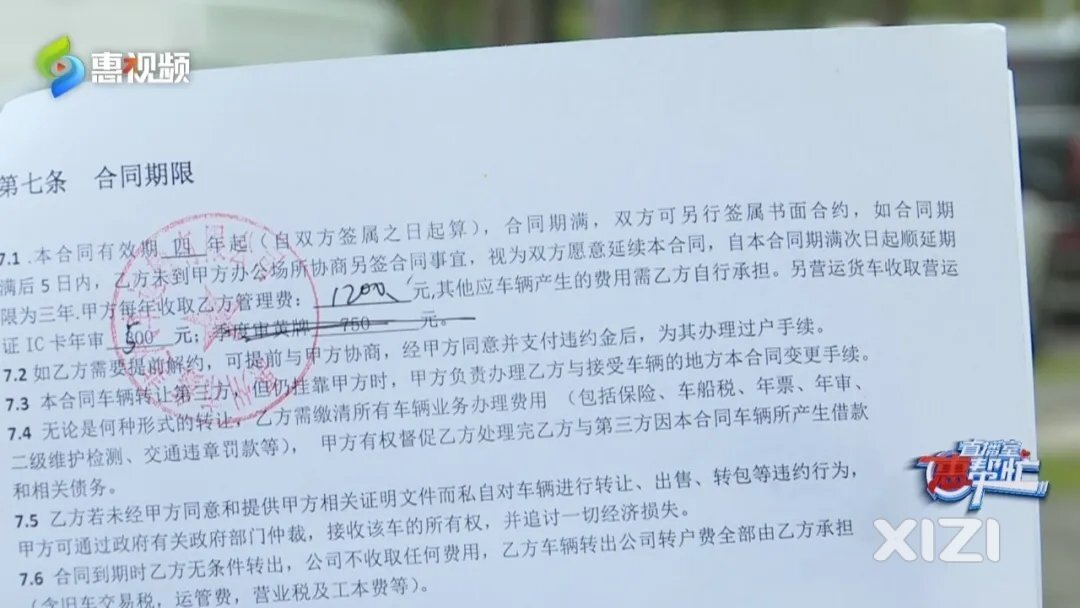 惠视频
第七条 合同期限
7.1.本合同有效期 四 年起（自双方签属之日起算），合同期满，双方可另行签属书面合约，如合同期
满后5日内，乙方未到甲方办公场所协商另签合同事宜，视为双方愿意延续本合同，自本合同期满次日起顺延期
限为三年.甲方每年收取乙方管理费：1200元,其他应车辆产生的费用需乙方自行承担。另营运货车收取营运
证IC卡年审 500 元；季度审黄牌 750 元。
7.2 如乙方需要提前解约，可提前与甲方协商，经甲方同意并支付违约金后，为其办理过户手续。
7.3 本合同车辆转让第三方，但仍挂靠甲方时，甲方负责办理乙方与接受车辆的地方本合同变更手续。
7.4 无论是何种形式的转让，乙方需缴清所有车辆业务办理费用（包括保险、车船税、年票、年审、
二级维护检测、交通违章罚款等），甲方有权督促乙方处理完乙方与第三方因本合同车辆所产生借款
和相关债务。
7.5 乙方若未经甲方同意和提供甲方相关证明文件而私自对车辆进行转让、出售、转包等违约行为，
甲方可通过政府有关政府部门仲裁，接收该车的所有权，并追讨一切经济损失。
7.6 合同到期时乙方无条件转出，公司不收取任何费用，乙方车辆转出公司转户费全部由乙方承担
（含旧车交易税，运管费，营业税及工本费等）。
直播室
惠帮忙
XIZI